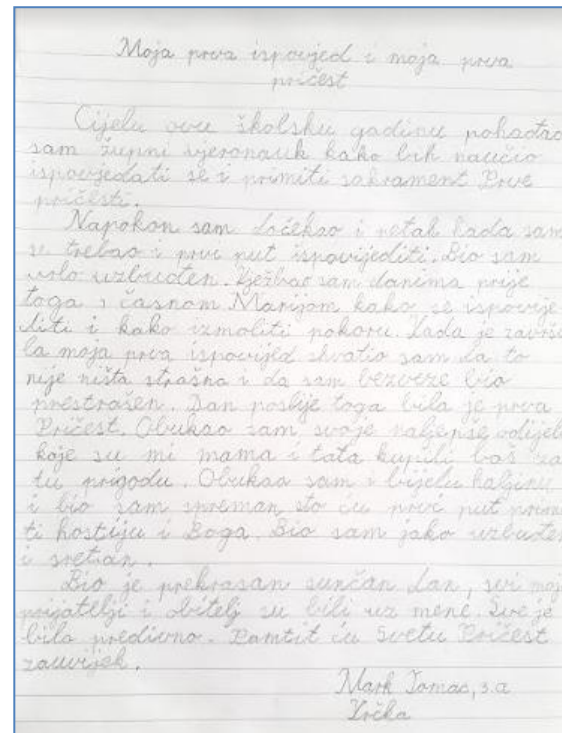 Moja prva ispovjed i moja prva
pričest
Cijelu ovu školsku godinu pohađao
sam župni vjeronauk kako bih naučio
ispovjedati se i primiti sakrament Prve
pričesti.
Napokon sam dočekao i petak kada sam
se trebao i prvi put ispovijediti. Bio sam
vrlo uzbuđen. Vježbao sam danima prije
toga s časnom Marijom kako se ispovije
diti i kako izmoliti pokoru. Kada je završi
la moja prva ispovijed shvatio sam da to
nije ništa strašno i da sam bezveze bio
prestrašen. Dan poslije toga bila je prva
Pričest. Obukao sam svoje najljepše odijelo
koje su mi mama i tata kupili baš za
tu prigodu. Obukao sam i bijelu haljinu
i bio sam spreman što ću prvi put primi
ti hostiju i Boga. Bio sam jako uzbuđen
i sretan.
Bio je prekrasan sunčan dan, svi moji
prijatelji i obitelj su bili uz mene. Sve je
bilo predivno. Pamtit ću Svetu Pričest
zauvijek.
Mark Tomac, 3.a